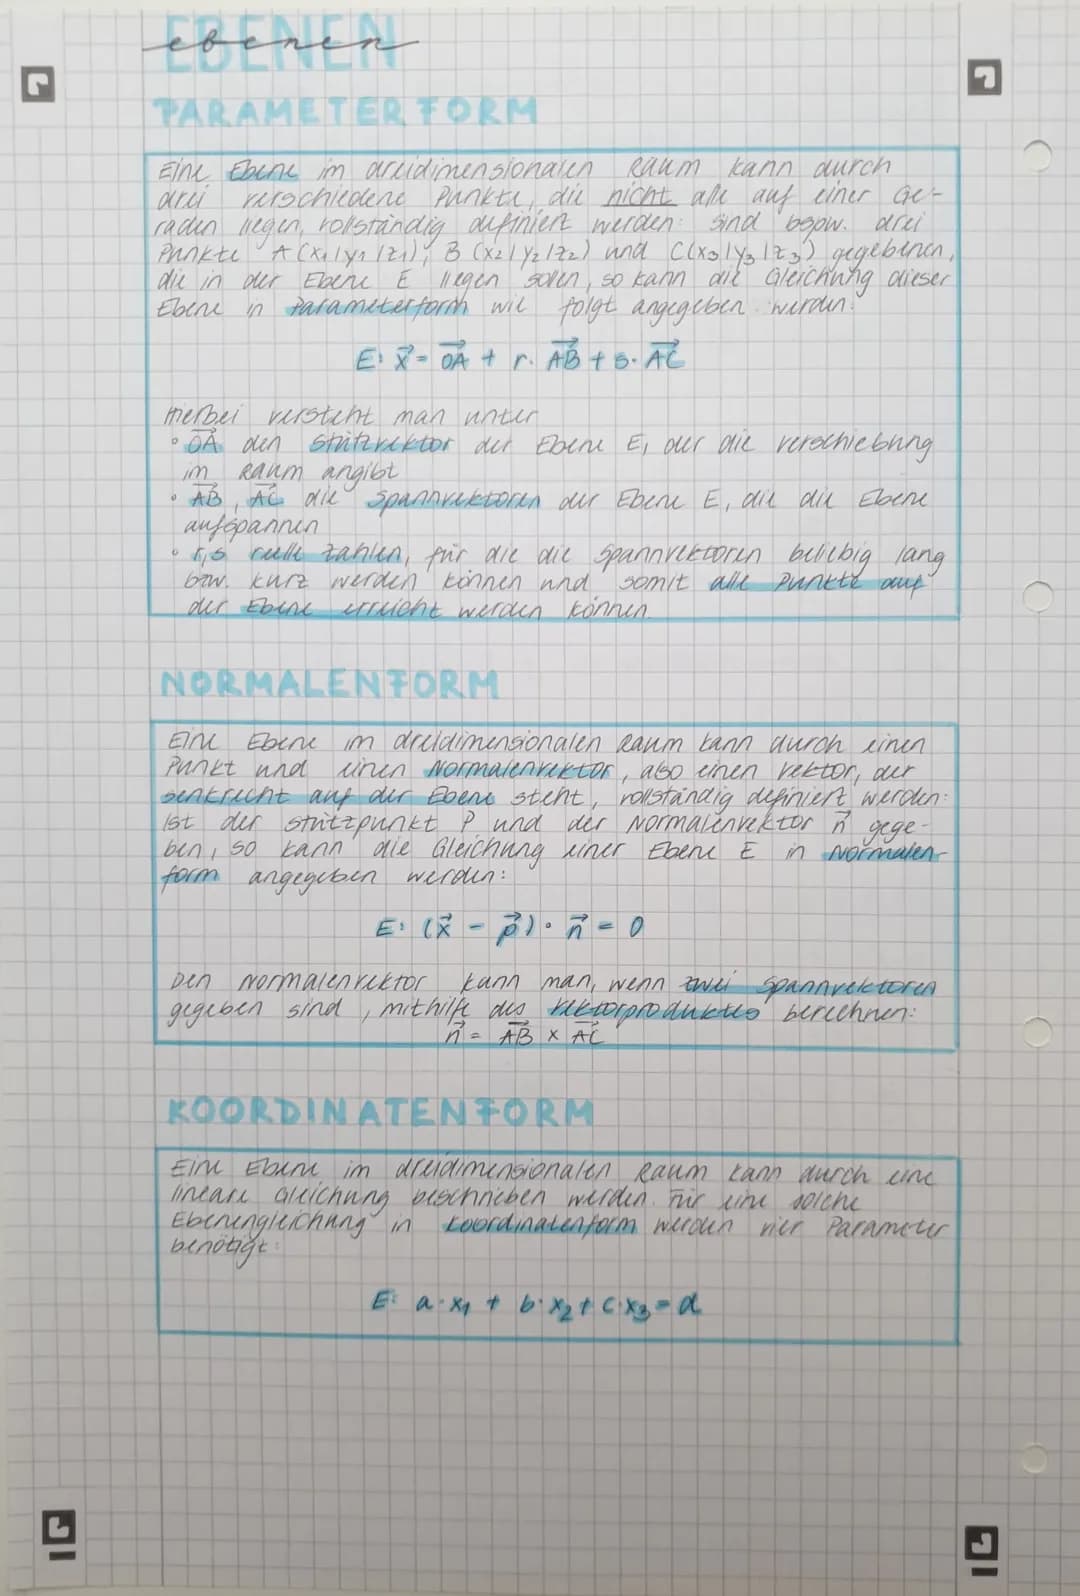 EBENEN
ebenen
PARAMETERFORM
Eine Ebene im dreidimensionalen Raum kann durch
drei verschiedene Punkte, die nicht alle auf einer Ge-
raden liegen, vollständig definiert werden: Sind bspw. drei
Punkte A(x₁|y₁|z₁), B(x₂|y₂|z₂) und C(x₃|y₃|z₃) gegebenen,
die in der Ebene E liegen sollen, so kann die Gleichung dieser
Ebene in Parameterform wie folgt angegeben werden:
E: x⃗ = OA⃗ + r · AB⃗ + s · AC⃗
Hierbei versteht man unter
• OA⃗ den Stützvektor der Ebene E, der die Verschiebung
im Raum angibt
• AB⃗, AC⃗ die Spannvektoren der Ebene E, die die Ebene
aufspannen
• r,s reelle Zahlen, für die die Spannvektoren beliebig lang
bzw. kurz werden können und somit alle Punkte auf
der Ebene erreicht werden können.
NORMALENFORM
Eine Ebene im dreidimensionalen Raum kann durch einen
Punkt und einen Normalenvektor, also einen Vektor, der
senkrecht auf der Ebene steht, vollständig definiert werden:
Ist der Stützpunkt P und der Normalenvektor n⃗ gege-
ben, so kann die Gleichung einer Ebene E in Normalen-
form angegeben werden:
E: (x⃗ - p⃗) · n⃗ = 0
Den Normalenvektor kann man, wenn zwei Spannvektoren
gegeben sind, mithilfe des Vektorproduktes berechnen:
n⃗ = AB⃗ × AC⃗
KOORDINATENFORM
Eine Ebene im dreidimensionalen Raum kann durch eine
lineare Gleichung beschrieben werden. Für eine solche
Ebenengleichung in Koordinatenform werden vier Parameter
benötigt:
E: a·x₁ + b·x₂ + c·x₃ = d